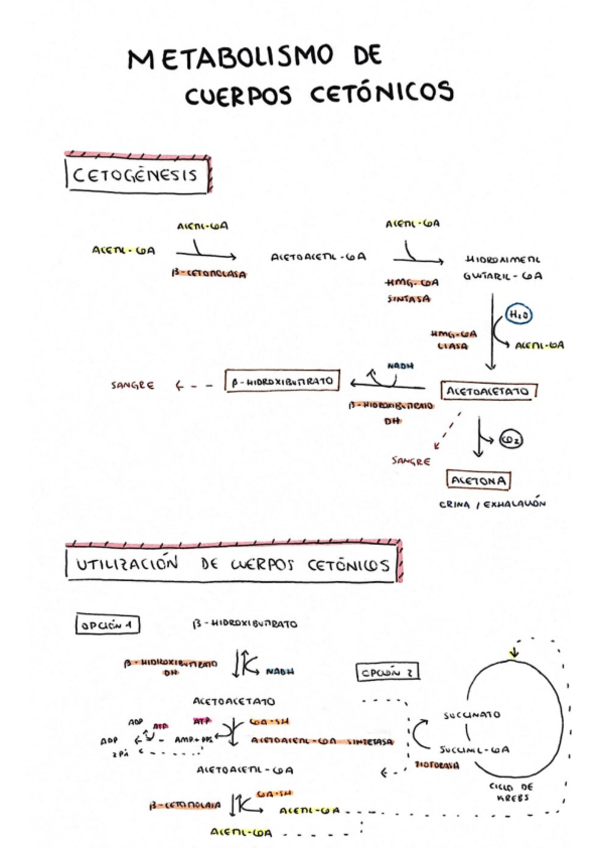 METABOLISMO DE
CUERPOS CETÓNICOS
CETOGÉNESIS
ACETIL-COA
ACETIL-COA
ACETIL-COA
β-CETOTIOLASA
ACETOACETIL-COA
HMG-COA
SINTASA
HIDROXIMETIL
GLUTARIL-COA
H₂O
HMG-COA
LIASA
ACETIL-COA
NADH
SANGRE
β-HIDROXIBUTIRATO
ACETOACETATO
β-HIDROXIBUTIRATO
DH
CO₂
SANGRE
ACETONA
ORINA / EXHALACIÓN
UTILIZACIÓN DE CUERPOS CETÓNICOS
OPCIÓN 1
β-HIDROXIBUTIRATO
β-HIDROXIBUTIRATO
DH
NADH
OPCIÓN 2
ACETOACETATO
SUCCINATO
ADP
ATP
ATP
COA-SH
ADP
AMP+PPi
ACETOACETIL-COA SINTETASA
SUCCINIL-COA
2Pi
TIOFORASA
ACETOACETIL-COA
CICLO DE
KREBS
COA-SH
β-CETOTIOLASA
ACETIL-COA
ACETIL-COA